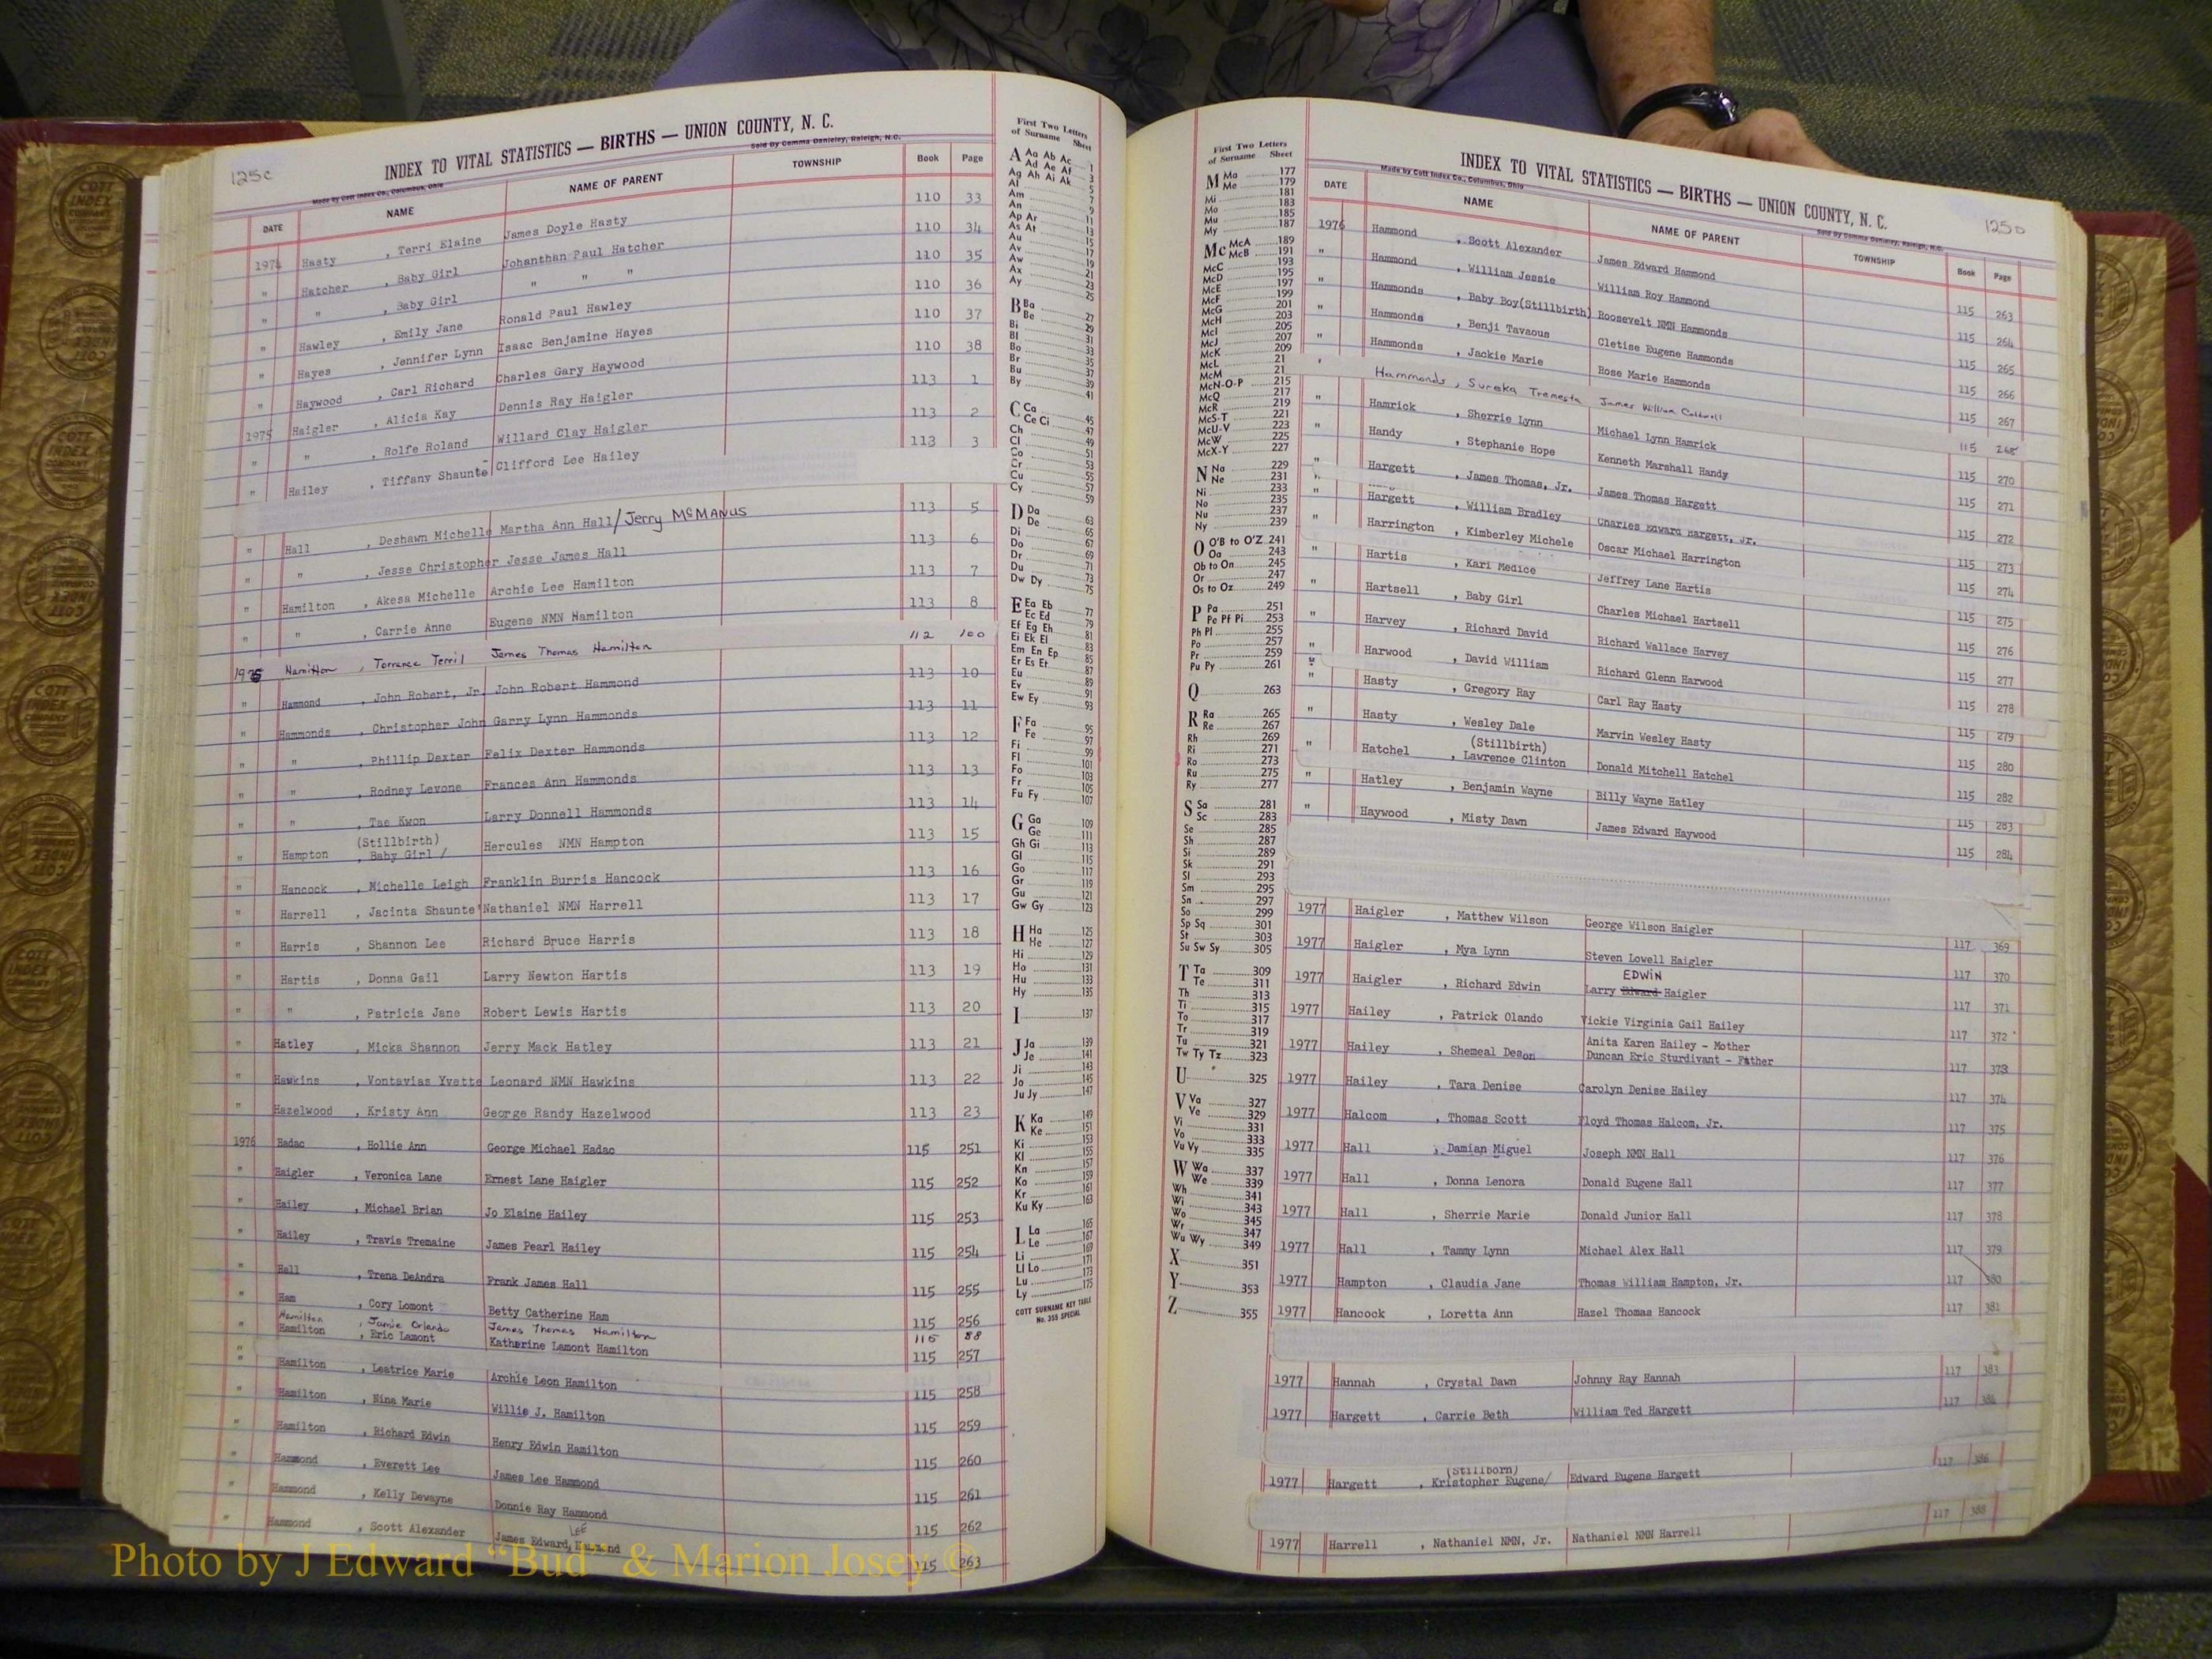 125c
INDEX TO VITAL STATISTICS — BIRTHS — UNION COUNTY, N. C.
Made by Cott Index Co., Columbus, Ohio
Sold By Comma Danieley, Raleigh, N.C.
DATE NAME NAME OF PARENT TOWNSHIP Book Page
1974 Hasty , Terri Elaine James Doyle Hasty 110 33
" Hatcher , Baby Girl Johanthan Paul Hatcher 110 34
" " , Baby Girl " " " 110 35
" Hawley , Emily Jane Ronald Paul Hawley 110 36
" Hayes , Jennifer Lynn Isaac Benjamine Hayes 110 37
" Haywood , Carl Richard Charles Gary Haywood 110 38
1975 Haigler , Alicia Kay Dennis Ray Haigler 113 1
" " , Rolfe Roland Willard Clay Haigler 113 2
" Hailey , Tiffany Shaunte Clifford Lee Hailey 113 3
" Hall , Deshawn Michelle Martha Ann Hall/Jerry McMANUS 113 5
" " , Jesse Christopher Jesse James Hall 113 6
" Hamilton , Akesa Michelle Archie Lee Hamilton 113 7
" " , Carrie Anne Eugene NMN Hamilton 113 8
1975 Hamilton , Torrence Terril James Thomas Hamilton 112 100
" Hammond , John Robert, Jr. John Robert Hammond 113 10
" Hammonds , Christopher John Garry Lynn Hammonds 113 11
" " , Phillip Dexter Felix Dexter Hammonds 113 12
" " , Rodney Levone Frances Ann Hammonds 113 13
" " , Tae Kwon Larry Donnell Hammonds 113 14
" Hampton (Stillbirth) , Baby Girl / Hercules NMN Hampton 113 15
" Hancock , Michelle Leigh Franklin Burris Hancock 113 16
" Harrell , Jacinta Shaunte' Nathaniel NMN Harrell 113 17
" Harris , Shannon Lee Richard Bruce Harris 113 18
" Hartis , Donna Gail Larry Newton Hartis 113 19
" " , Patricia Jane Robert Lewis Hartis 113 20
" Hatley , Micka Shannon Jerry Mack Hatley 113 21
" Hawkins , Vontavias Yvette Leonard NMN Hawkins 113 22
" Hazelwood , Kristy Ann George Randy Hazelwood 113 23
1976 Hadac , Hollie Ann George Michael Hadac 115 251
" Haigler , Veronica Lane Ernest Lane Haigler 115 252
" Hailey , Michael Brian Jo Elaine Hailey 115 253
" Hailey , Travis Tremaine James Pearl Hailey 115 254
" Hall , Trena DeAndra Frank James Hall 115 255
" Ham , Cory Lomont Betty Catherine Ham 115 256
" Hamilton , Jamie Orlando James Thomas Hamilton 116 88
" Hamilton , Eric Lamont Katherine Lamont Hamilton 115 257
" Hamilton , Leatrice Marie Archie Leon Hamilton 115 258
" Hamilton , Nina Marie Willie J. Hamilton 115 259
" Hamilton , Richard Edwin Henry Edwin Hamilton 115 260
" Hammond , Everett Lee James Lee Hammond 115 261
" Hammond , Kelly Dewayne Donnie Ray Hammond 115 262
" Hammond , Scott Alexander James Edward LEE Hammond 115 263
First Two Letters of Surname Sheet
A Aa Ab Ac 1
Ad Ae Af 3
Ag Ah Ai Ak 5
Al 7
Am 9
An 11
Ap Ar 13
As At 15
Au 17
Av 19
Aw 21
Ax 23
Ay 25
B Ba 27
Be 29
Bi 31
Bl 33
Bo 35
Br 37
Bu 39
By 41
C Ca 45
Ce Ci 47
Ch 49
Cl 51
Co 53
Cr 57
Cy 59
D Da 63
De 65
Di 67
Do 69
Dr 71
Du 73
Dw Dy 75
E Ea Eb 77
Ec Ed 79
Ef Eg Eh 81
Ei Ek El 83
Em En Ep 85
Er Es Et 87
Eu 89
Ev 91
Ew Ey 93
F Fa 95
Fe 97
Fi 99
Fl 101
Fo 103
Fr 105
Fu Fy 107
G Ga 109
Ge 111
Gh Gi 113
Gl 115
Go 117
Gr 119
Gu 121
Gw Gy 123
H Ha 125
He 127
Hi 129
Ho 131
Hu 133
Hy 135
I 137
J Ja 139
Je 141
Ji 143
Jo 145
Ju Jy 147
K Ka 149
Ke 151
Ki 153
Kl 155
Kn 157
Ko 159
Kr 161
Ku Ky 163
L La 165
Le 167
Li 169
Ll Lo 171
Lu 173
Ly 175
COTT SURNAME KEY TABLE
No. 355 SPECIAL
First Two Letters of Surname Sheet
M Ma 177
Me 179
Mi 181
Mo 183
Mu 185
My 187
Mc McA 189
McB 191
McC 193
McD 195
McE 197
McF 199
McG 201
McH 203
McI 205
McJ 207
McK 209
McL 21
McM 21
McN-O-P 215
McQ 217
McR 219
McS-T 221
McU-V 223
McW 225
McX-Y 227
N Na 229
Ne 231
Ni 233
No 235
Nu 237
Ny 239
O O'B to O'Z 241
Oa 243
Ob to On 245
Or 247
Os to Oz 249
P Pa 251
Pe Pf Pi 253
Ph Pl 255
Po 257
Pr 259
Pu Py 261
Q 263
R Ra 265
Re 267
Rh 269
Ri 271
Ro 273
Ru 275
Ry 277
S Sa 281
Sc 283
Se 285
Sh 287
Si 289
Sk 291
Sl 293
Sm 295
Sn 297
So 299
Sp Sq 301
St 303
Su Sw Sy 305
T Ta 309
Te 311
Th 313
Ti 315
To 317
Tr 319
Tu 321
Tw Ty Tz 323
U 325
V Va 327
Ve 329
Vi 331
Vo 333
Vu Vy 335
W Wa 337
We 339
Wh 341
Wi 343
Wo 345
Wr 347
Wu Wy 349
X 351
Y 353
Z 355
125D
INDEX TO VITAL STATISTICS — BIRTHS — UNION COUNTY, N. C.
Made by Cott Index Co., Columbus, Ohio
Sold By Comma Danieley, Raleigh, N.C.
DATE NAME NAME OF PARENT TOWNSHIP Book Page
1976 Hammond , Scott Alexander James Edward Hammond 115 263
" Hammond , William Jessie William Roy Hammond 115 264
" Hammonds , Baby Boy(Stillbirth) Roosevelt NMN Hammonds 115 265
" Hammonds , Benji Tavaous Cletise Eugene Hammonds 115 266
" Hammonds , Jackie Marie Rose Marie Hammonds 115 267
" Hammonds , Sureka Tremesta James William 115 268
" Hamrick , Sherrie Lynn Michael Lynn Hamrick 115 270
" Handy , Stephanie Hope Kenneth Marshall Handy 115 271
" Hargett , James Thomas, Jr. James Thomas Hargett 115 272
" Hargett , William Bradley Charles Edward Hargett, Jr. 115 273
Harrington , Kimberley Michele Oscar Michael Harrington 115 274
" Hartis , Kari Medice Jeffrey Lane Hartis 115 275
" Hartsell , Baby Girl Charles Michael Hartsell 115 276
" Harvey , Richard David Richard Wallace Harvey 115 277
" Harwood , David William Richard Glenn Harwood 115 278
" Hasty , Gregory Ray Carl Ray Hasty 115 279
" Hasty , Wesley Dale Marvin Wesley Hasty 115 280
" Hatchel (Stillbirth) , Lawrence Clinton Donald Mitchell Hatchel 115 282
" Hatley , Benjamin Wayne Billy Wayne Hatley 115 283
" Haywood , Misty Dawn James Edward Haywood 115 284
1977 Haigler , Matthew Wilson George Wilson Haigler 117 369
1977 Haigler , Mya Lynn Steven Lowell Haigler 117 370
1977 Haigler , Richard Edwin Larry Edward EDWIN Haigler 117 371
1977 Hailey , Patrick Olando Vickie Virginia Gail Hailey 117 372
1977 Hailey , Shemeal Deson Anita Karen Hailey - Mother
Duncan Eric Sturdivant - Father 117 373
1977 Hailey , Tara Denise Carolyn Denise Hailey 117 374
1977 Halcom , Thomas Scott Floyd Thomas Halcom, Jr. 117 375
1977 Hall , Damian Miguel Joseph NMN Hall 117 376
1977 Hall , Donna Lenora Donald Eugene Hall 117 377
1977 Hall , Sherrie Marie Donald Junior Hall 117 378
1977 Hall , Tammy Lynn Michael Alex Hall 117 379
1977 Hampton , Claudia Jane Thomas William Hampton, Jr. 117 380
1977 Hancock , Loretta Ann Hazel Thomas Hancock 117 381
1977 Hannah , Crystal Dawn Johnny Ray Hannah 117 383
1977 Hargett , Carrie Beth William Ted Hargett 117 384
1977 Hargett (Stillborn) , Kristopher Eugene/ Edward Eugene Hargett 117 386
1977 Harrell , Nathaniel NMN, Jr. Nathaniel NMN Harrell 117 388
Photo by J Edward "Bud" & Marion Josey ©